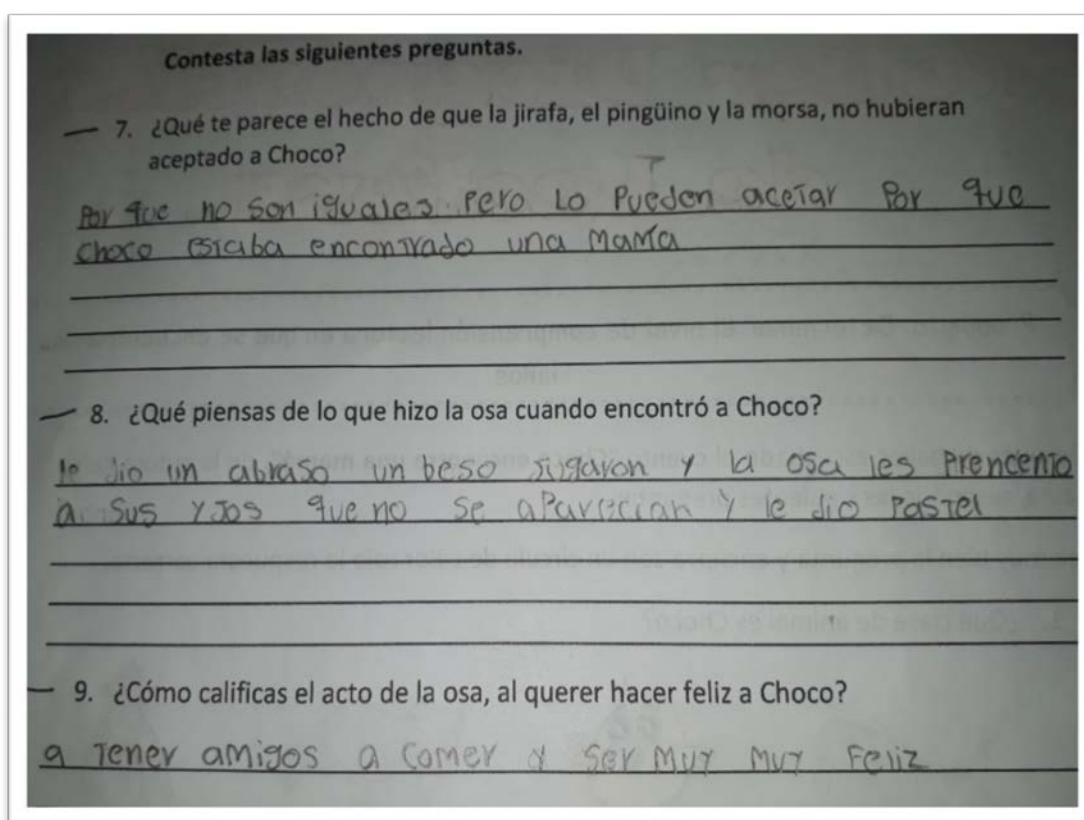 Contesta las siguientes preguntas.
7. ¿Qué te parece el hecho de que la jirafa, el pingüino y la morsa, no hubieran
aceptado a Choco?
Por que no son iguales pero Lo Pueden acetar Por que
choco estaba encontrado una mama
8. ¿Qué piensas de lo que hizo la osa cuando encontró a Choco?
le dio un abraso un beso jugaron y la osa les Prencento
a Sus YJos que no se aParecian y le dio Pastel
9. ¿Cómo calificas el acto de la osa, al querer hacer feliz a Choco?
a Tener amigos a comer y Ser MUY MUY Feliz